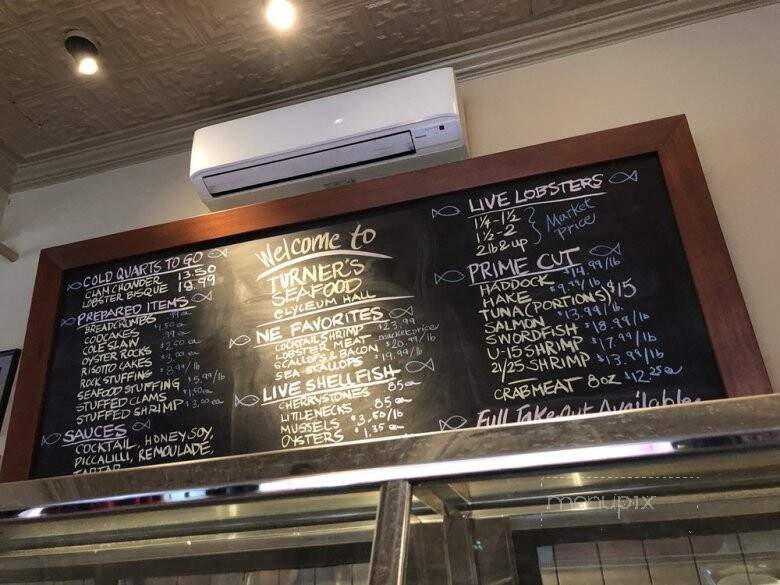 COLD QUARTS TO GO
CLAM CHOWDER 13.50
LOBSTER BISQUE 18.99
PREPARED ITEMS
BREADCRUMBS .99 ea
CODCAKES
COLE SLAW
OYSTER ROCKS
RISOTTO CAKES
ROCK STUFFING
SEAFOOD STUFFING
STUFFED CLAMS
STUFFED SHRIMP
SAUCES
COCKTAIL, HONEY SOY,
PICCALILLI, REMOULADE,
TARTAR
Welcome to
TURNER'S
SEAFOOD
@LYCEUM HALL
NE FAVORITES
COCKTAIL SHRIMP $23.99
LOBSTER MEAT market price
SCALLOPS & BACON $20.99/lb
SEA SCALLOPS $19.99/lb
LIVE SHELLFISH
CHERRYSTONES 85 ea
LITTLENECKS 85 ea
MUSSELS $3.50/lb
OYSTERS $1.35 ea
LIVE LOBSTERS
1¼-1½
1½-2
2lb & up
Market
price
PRIME CUT
HADDOCK $14.99/lb
HAKE $9.99/lb
TUNA (PORTIONS) $15
SALMON $13.99/lb
SWORDFISH $18.99/lb
U-15 SHRIMP $17.99/lb
21/25 SHRIMP $13.99/lb
CRABMEAT 8oz $12.25ea
Full Take Out Available
menupix